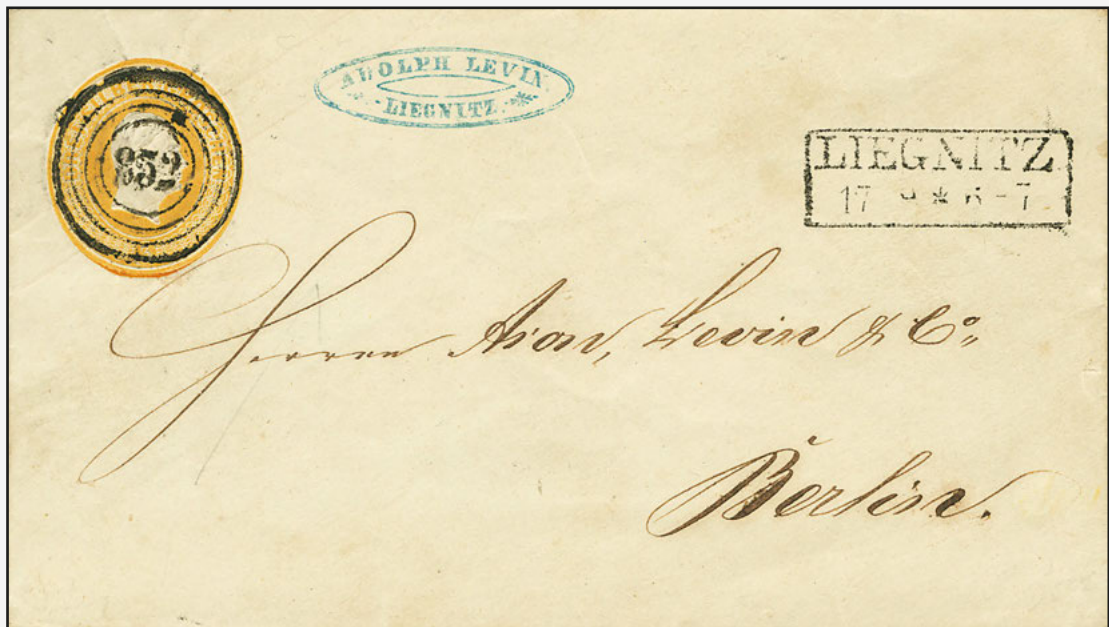 ADOLPH LEVIN.
LIEGNITZ.
852
LIEGNITZ
17 9 * 6-7
Herren Aron, Levin & Co.
Berlin.